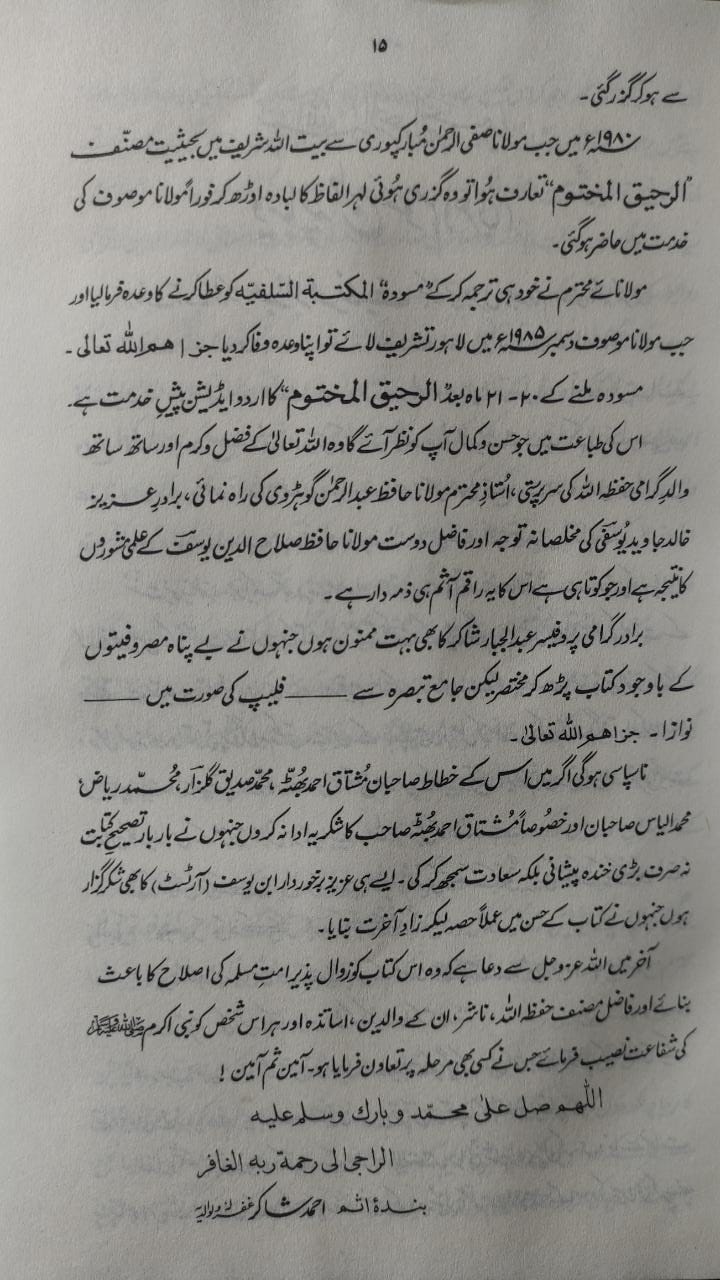 ۱۵
سے ہو کر گزر گئی۔
۱۹۸۰ء میں جب مولانا صفی الرحمٰن مُبارکپوری سے بیت اللہ شریف میں بحیثیت مصنّف
"الرحیق المختوم" تعارف ہُوا تو وہ گزری ہُوئی لہر الفاظ کا لبادہ اوڑھ کر فوراً مولانا موصوف کی
خدمت میں حاضر ہو گئی۔
مولانائے محترم نے خود ہی ترجمہ کر کے "مسودہ" المکتبة السّلفیّه کو عطا کرنے کا وعدہ فرما لیا اور
جب مولانا موصوف دسمبر ۱۹۸۵ء میں لاہور تشریف لائے تو اپنا وعدہ وفا کر دیا جزاھم اللہ تعالی۔
مسودہ ملنے کے ۲۰-۲۱ ماہ بعد "الرحیق المختوم" کا اردو ایڈیشن پیشِ خدمت ہے۔
اس کی طباعت میں جو حسن و کمال آپ کو نظر آئے گا وہ اللہ تعالیٰ کے فضل و کرم اور ساتھ ساتھ
والدِ گرامی حفظہ اللہ کی سرپرستی، اُستاذِ محترم مولانا حافظ عبدالرحمٰن گوہڑوی کی راہ نمائی، برادرِ عزیز
خالد جاوید یُوسفی کی مخلصانہ توجہ اور فاضل دوست مولانا حافظ صلاح الدین یوسف کے علمی مشوروں
کا نتیجہ ہے اور جو کوتاہی ہے اس کا یہ راقم آثم ہی ذمہ دار ہے۔
برادرِ گرامی پروفیسر عبدالجبار شاکر کا بھی بہت ممنون ہوں جنہوں نے بے پناہ مصروفیتوں
کے باوجود کتاب پڑھ کر مختصر لیکن جامع تبصرہ سے ——— فلیپ کی صورت میں ———
نوازا۔ جزاھم اللہ تعالیٰ۔
ناسپاسی ہو گی اگر میں اس کے خطاط صاحبان مُشتاق احمد بھُٹّہ، محمّد صدیق گلزار، مُحمّد ریاض،
محمد الیاس صاحبان اور خصُوصاً مُشتاق احمد بھُٹّہ صاحب کا شکریہ ادا نہ کروں جنہوں نے بار بار تصحیحِ کتابت
نہ صرف بڑی خندہ پیشانی بلکہ سعادت سمجھ کر کی۔ ایسے ہی عزیز برخوردار ابن یوسف (آرٹسٹ) کا بھی شکر گزار
ہوں جنہوں نے کتاب کے حسن میں عملاً حصہ لیکر زادِ آخرت بنایا۔
آخر میں اللہ عزوجل سے دعا ہے کہ وہ اس کتاب کو زوال پذیر امتِ مسلمہ کی اصلاح کا باعث
بنائے اور فاضل مصنف حفظہ اللہ، ناشر، ان کے والدین، اساتذہ اور ہر اس شخص کو نبی اکرم ﷺ
کی شفاعت نصیب فرمائے جس نے کسی بھی مرحلہ پر تعاون فرمایا ہو۔ آمین ثم آمین!
اللّٰھم صل علیٰ محمّد وبارك وسلم علیه
الراجی الی رحمة ربه الغافر
بندۂ اثم احمد شاکر غفرلہٗ ولوالدیہ